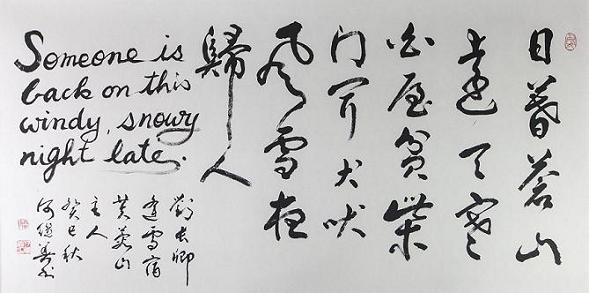 日暮蒼山
遠天寒
白屋貧柴
門聞犬吠
風雪夜
歸人
Someone is
back on this
windy, snowy
night late.
劉長卿
逢雪宿
芙蓉山
主人
癸巳秋
何繼善書